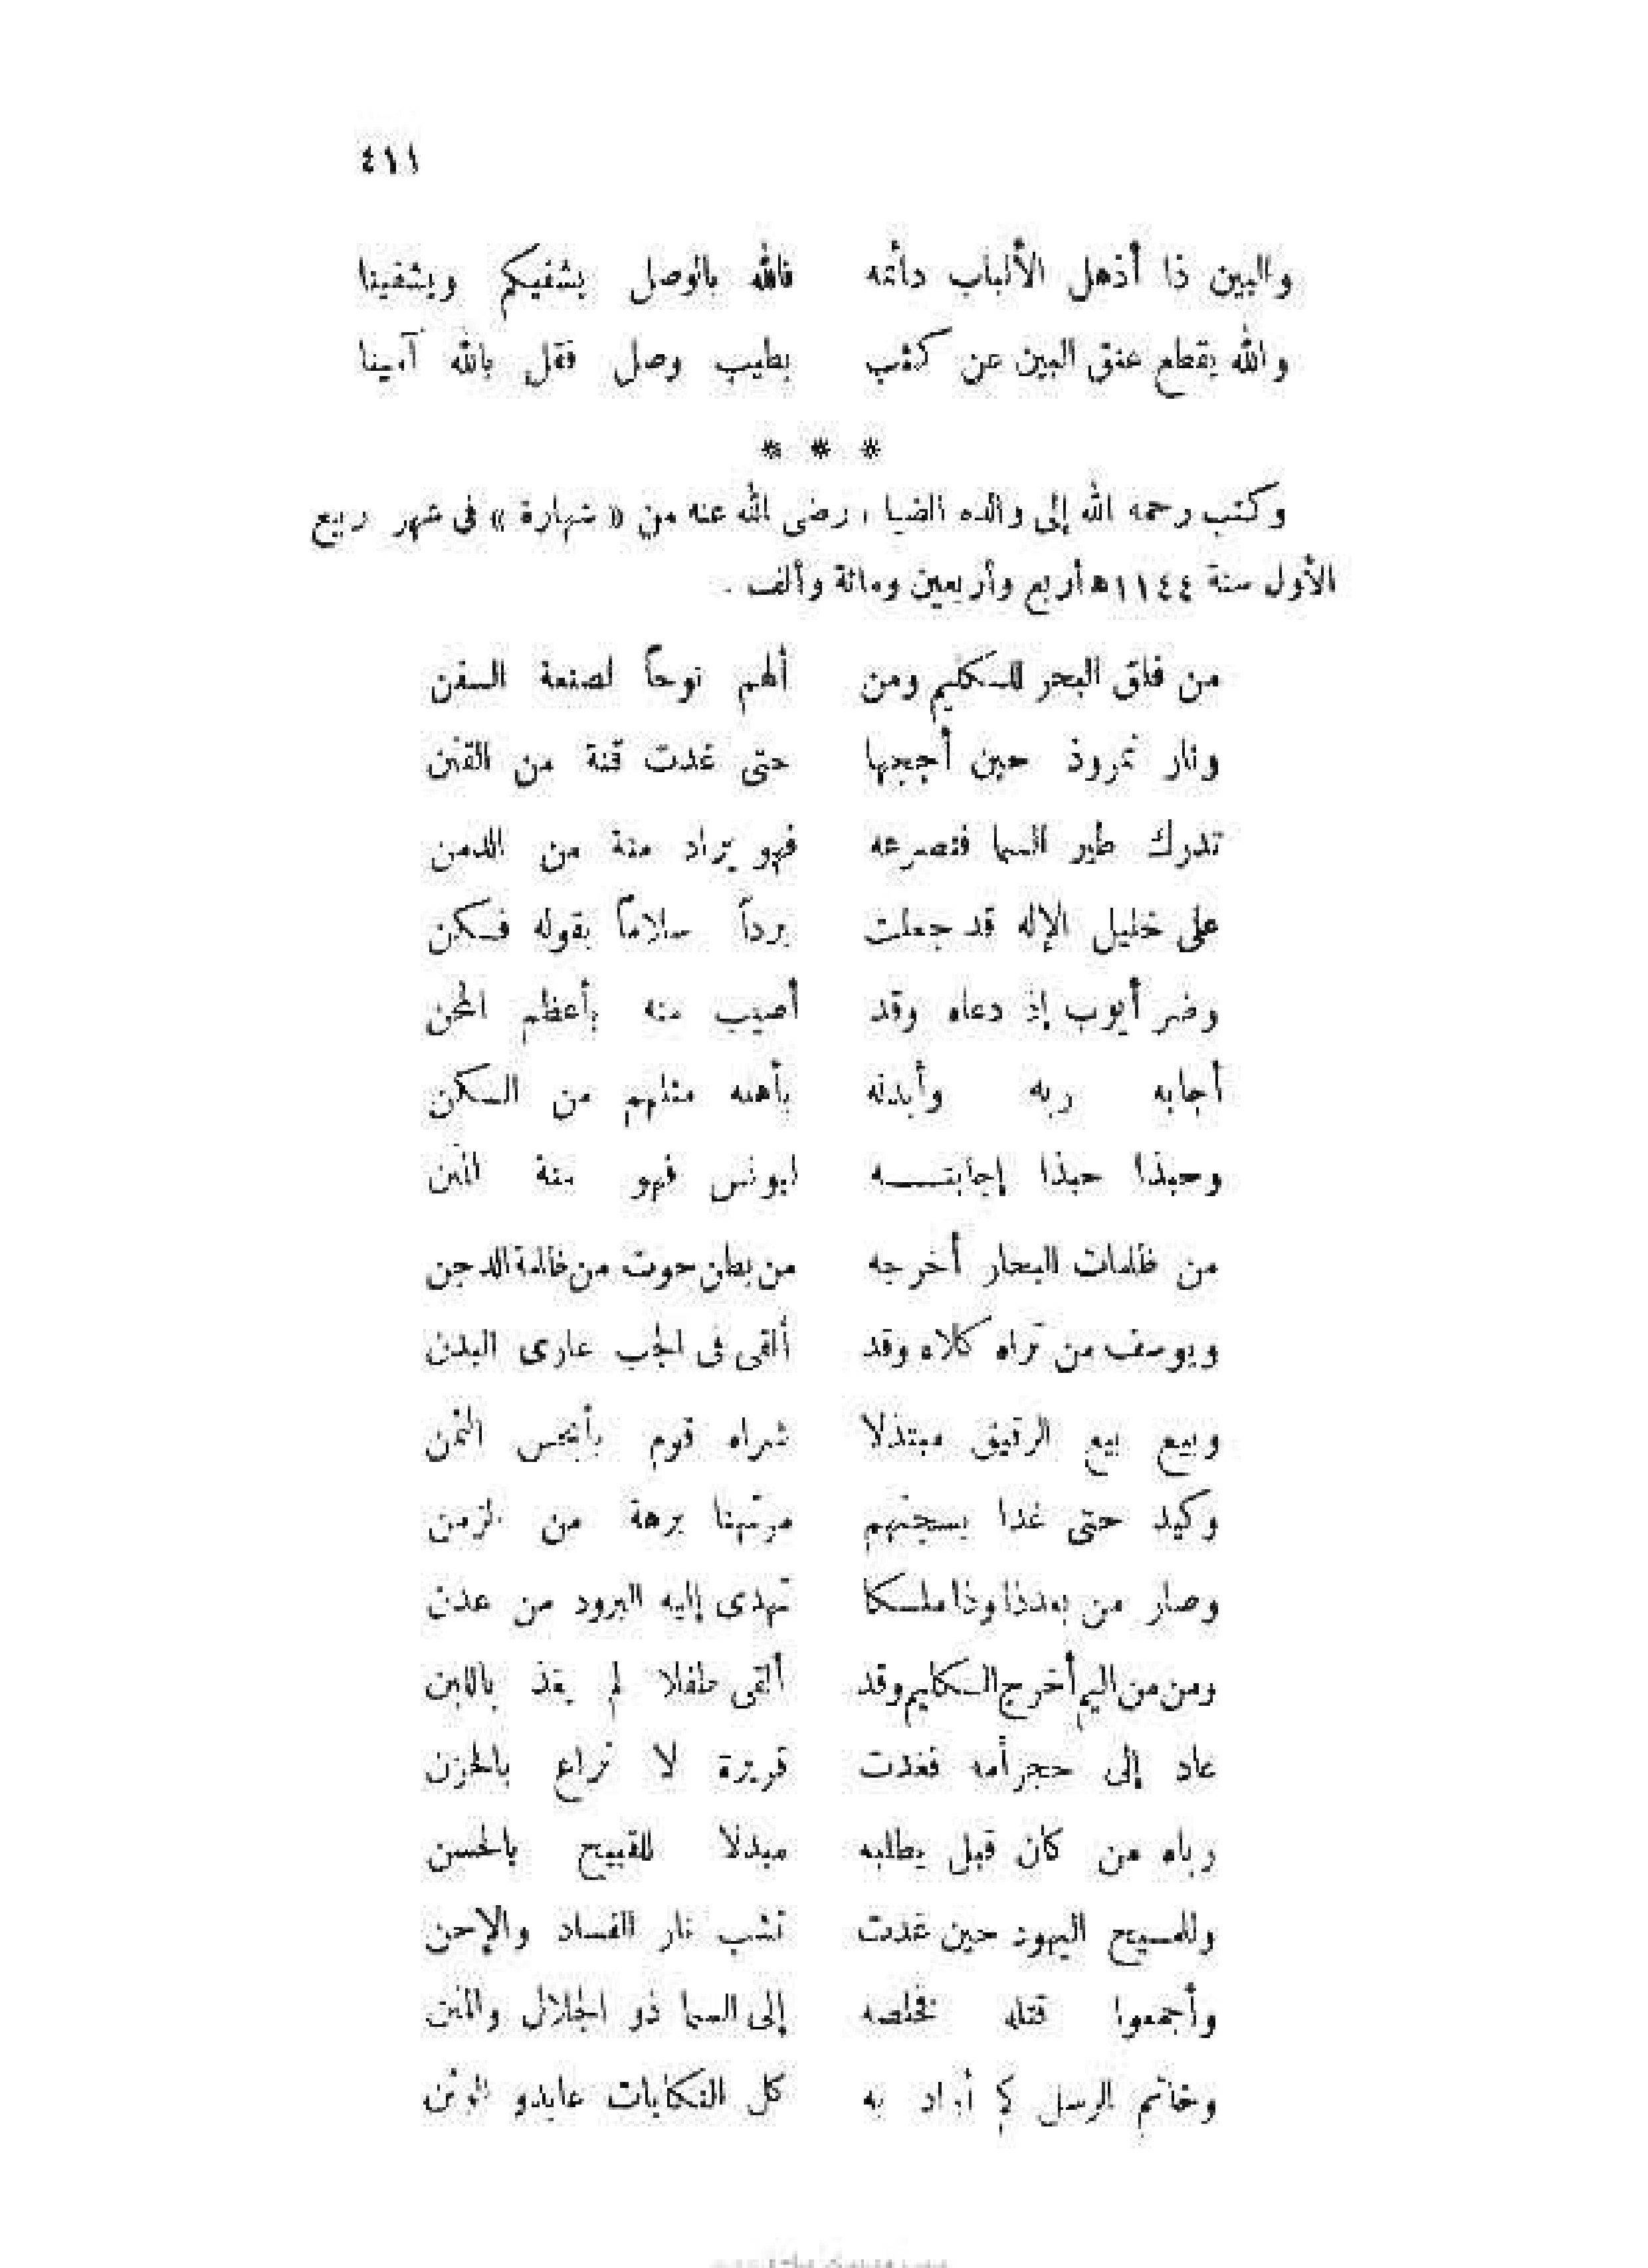 ٤١١
والبين ذا أذهل الألباب دأئمه فالله بالوصل يشفيكم ويشفينا
والله يقطع عنق البين عن كثب بطيب وصل فقل بالله آمينا
* * *
وكتب رحمه الله إلى والده الضيا ، رضى الله عنه من « شهارة » فى شهر ربيع
الأول سنة ١١٤٤ھ أربع وأربعين ومائة وألف .
من فلق البحر للكليم ومن ألهم نوحاً لصنعة السفن
ونار نمروذ حين أججها حتى غدت قنة من القنن
تدرك طير السما فتصرعه فهو يراد منة من الدمن
على خليل الإله قد جعلت برداً سلاماً بقوله فسكن
وضر أيوب إذ دعاه وقد أصيب منه بأعظم المحن
أجابه ربه وأبدله بأهله مثلهم من السكن
وحبذا حبذا إجابتــــه ليونس فهو منة المنن
من ظلمات البحار أخرجه من بطن حوت من ظلمة الدجن
ويوسف من تراه كلاه وقد ألقى فى الجب عارى البدن
وبيع بيع الرقيق مبتذلا شراه قوم بأبخس الثمن
وكيد حتى غدا بسجنهم مرتهنا برهة من الزمن
وصار من بعد ذا وذا ملكا تهدى إليه البرود من عدن
ومن من اليم أخرج الكليم وقد ألقى طفلا لم يغذ باللبن
عاد إلى حجر أمه فغدت قريرة لا تراع بالحزن
رباه من كان قبل يطلبه مبدلا للقبيح بالحسن
وللمسيح اليهود حين غدت تشب نار الفساد والإحن
وأجمعوا قتله فخلصه إلى السما ذو الجلال والمنن
وخاتم الرسل كم أراد به كل النكايات عابدو الوثن